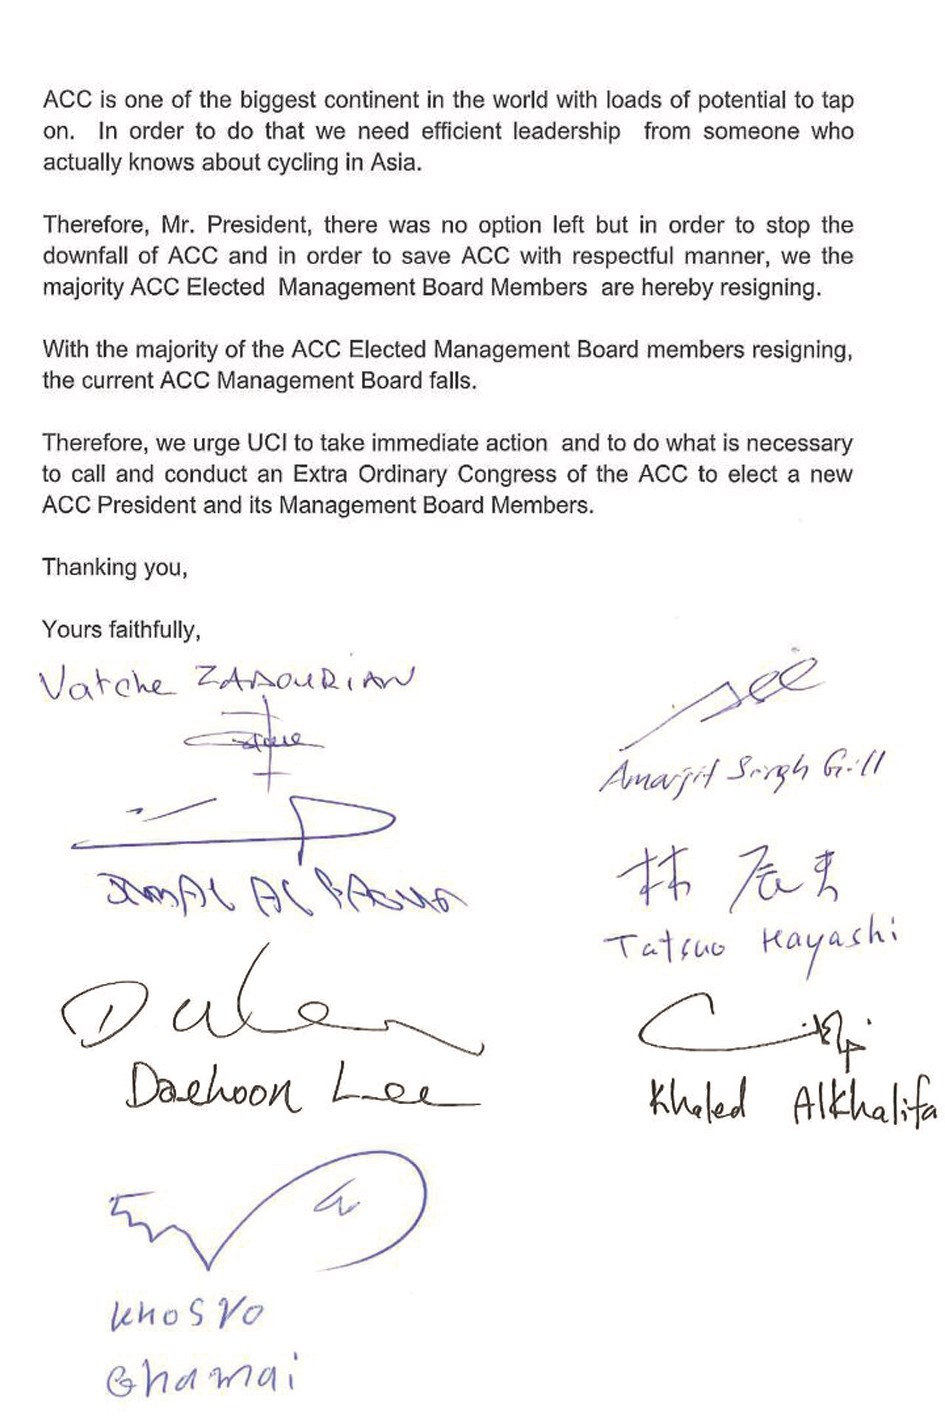 ACC is one of the biggest continent in the world with loads of potential to tap
on. In order to do that we need efficient leadership from someone who
actually knows about cycling in Asia.
Therefore, Mr. President, there was no option left but in order to stop the
downfall of ACC and in order to save ACC with respectful manner, we the
majority ACC Elected Management Board Members are hereby resigning.
With the majority of the ACC Elected Management Board members resigning,
the current ACC Management Board falls.
Therefore, we urge UCI to take immediate action and to do what is necessary
to call and conduct an Extra Ordinary Congress of the ACC to elect a new
ACC President and its Management Board Members.
Thanking you,
Yours faithfully,
Vatche ZADOURIAN
Amarjit Singh Gill
JAMAL AL
林 辰
Tatsuo Hayashi
Daehoon Lee
Khaled AlKhalifa
Khosro
Ghamai